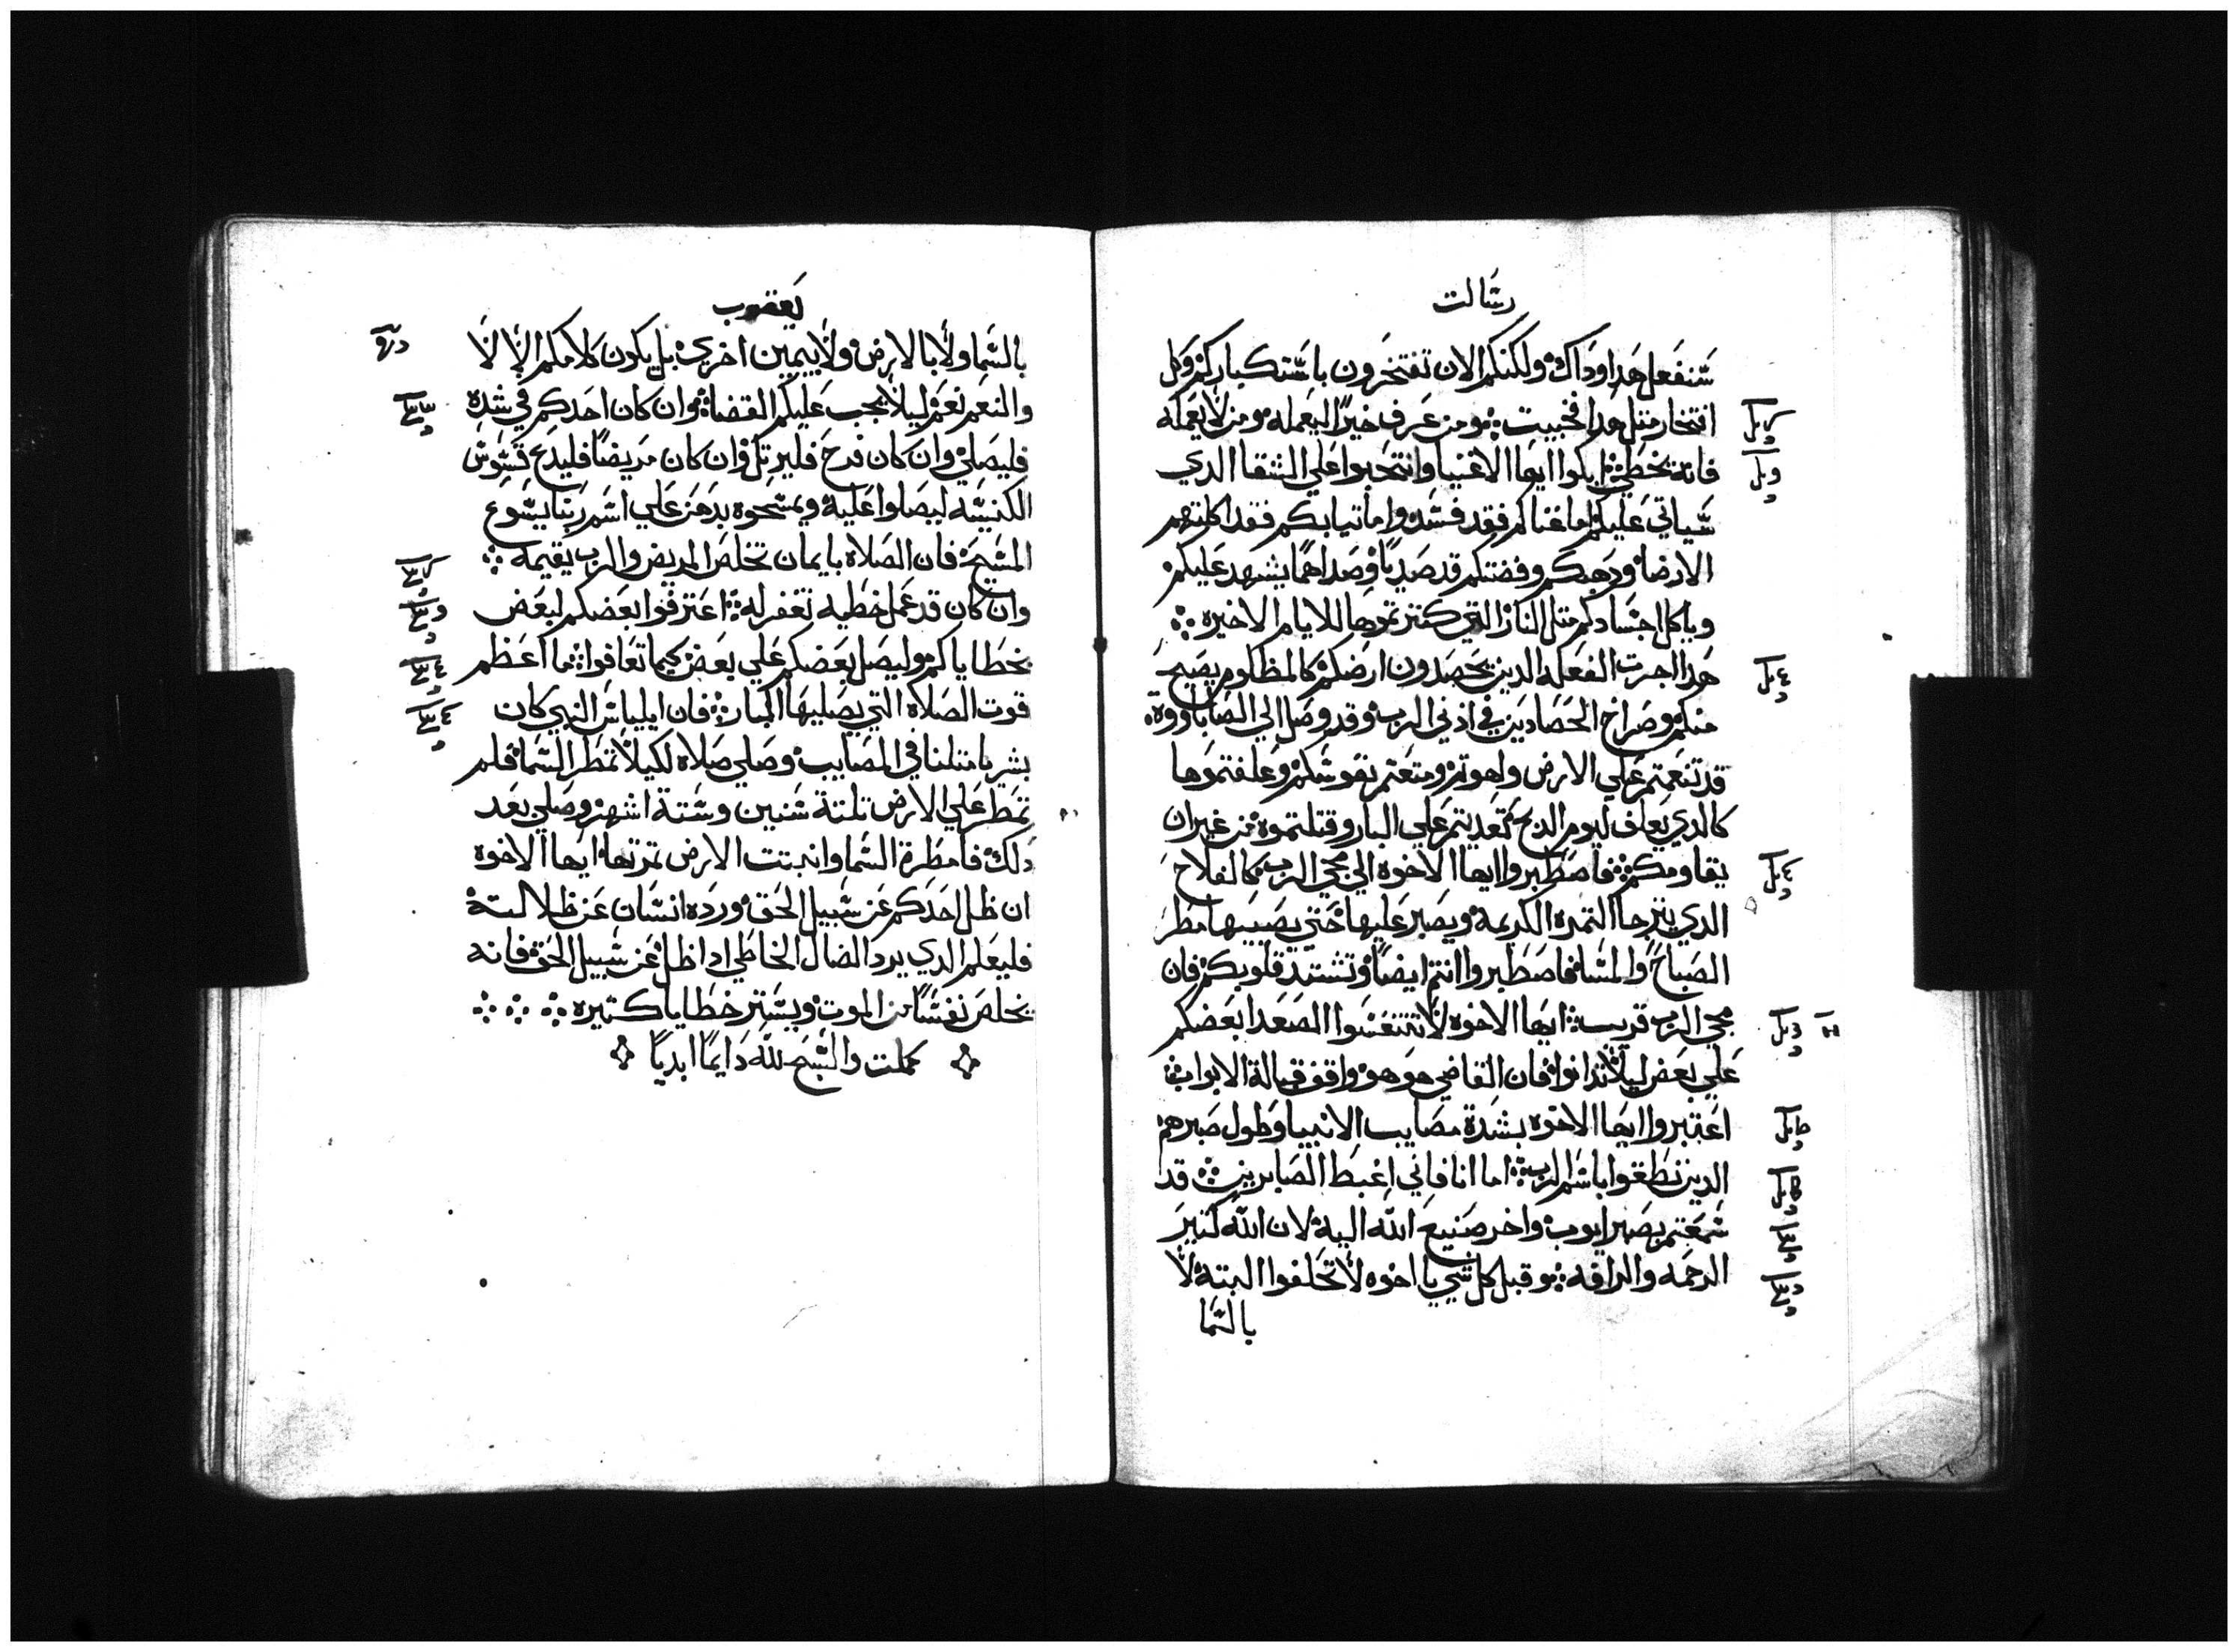 رسالت
سنفعل هدا وداك ولكنكم الان تفتخرون باستكباركم وكل
افتخار متل هدا فخبيت ومن عرف خيرا ليعمله ومن لا يعمله
فانه يخطي ابكوا ايها الاغنيا وانتحبوا علي الشقا الدي
سياتي عليكم اما غناكم فقد فسد واما تيابكم فقد اكلتهم
الارضا ودهبكم وفضتكم قد صديا وصداهما يشهد عليكم
وياكل اجسادكم متل النار التي كنزتموها للايام الاخيره
هدا اجرت الفعله الدين يحصدون ارضكم كالمظلوم يصيح
منكم وصراخ الحصادين في ادني الرب وقد وصل الي الصاباووة
قد تنعمتم علي الارض ولهوتم ومتعتم نفوسكم وعلفتموها
كالدي يعلف ليوم الدبح تعديتم علي البار وقتلتموه من غير ان
يقاومكم فاصطبروا ايها الاخوه الي مجي الرب كالفلاح
الدي يترجا التمره الكريمه ويصبر عليها حتي يصيبها مطر
الصباح والمسا فاصطبروا انتم ايضا وتشتد قلوبكم فان
مجي الرب قريب ايها الاخوه لا تتنفسوا الصعدا بعضكم
علي بعض ليلا تدانوا فان القاضي هو هو واقف قبالة الابواب
اعتبروا ايها الاخوه بشدة مصايب الانبيا وطول صبرهم
الدين نطقوا باسم الرب اما انا فاني اغبط الصابرين قد
سمعتم بصبر ايوب واخر صنيع الله اليه لان الله كتير
الرحمه والرافه وقبل كل شي يا اخوه لا تحلفوا البته لا
بالسما
يعقوب
بالسما ولا بالارض ولا بيمين اخري بل يكون كلامكم الا لا
والنعم نعم ليلا يجب عليكم القضا وان كان احدكم في شده
فليصلي وان كان فرح فليرتل وان كان مريضا فليدع قسوس
الكنيسه ليصلوا عليه ويمسحوه بدهن علي اسم ربنا يسوع
المسيح فان الصلاه بايمان تخلص المريض والرب يقيمه
وان كان قد عمل خطيه تغفر له اعترفوا بعضكم لبعض
بخطاياكم وليصل بعضكم علي بعض كيما تعافوا ما اعظم
قوت الصلاه التي يصليها البار فان ايلياس النبي كان
بشريا متلنا في المصايب وصلي صلاه لكيلا تمطر السما فلم
تمطر علي الارض تلتة سنين وستة اشهر وصلي بعد
دلك فامطرة السما وانبتت الارض تمرتها ايها الاخوه
ان ظل احدكم عن سبيل الحق ورده انسان عن ظلالته
فليعلم الدي يرد الضال الخاطي ادا ظل عن سبيل الحق فانه
يخلص نفسا من الموت ويستر خطايا كتيره
كملت والسبح لله دايما ابديا